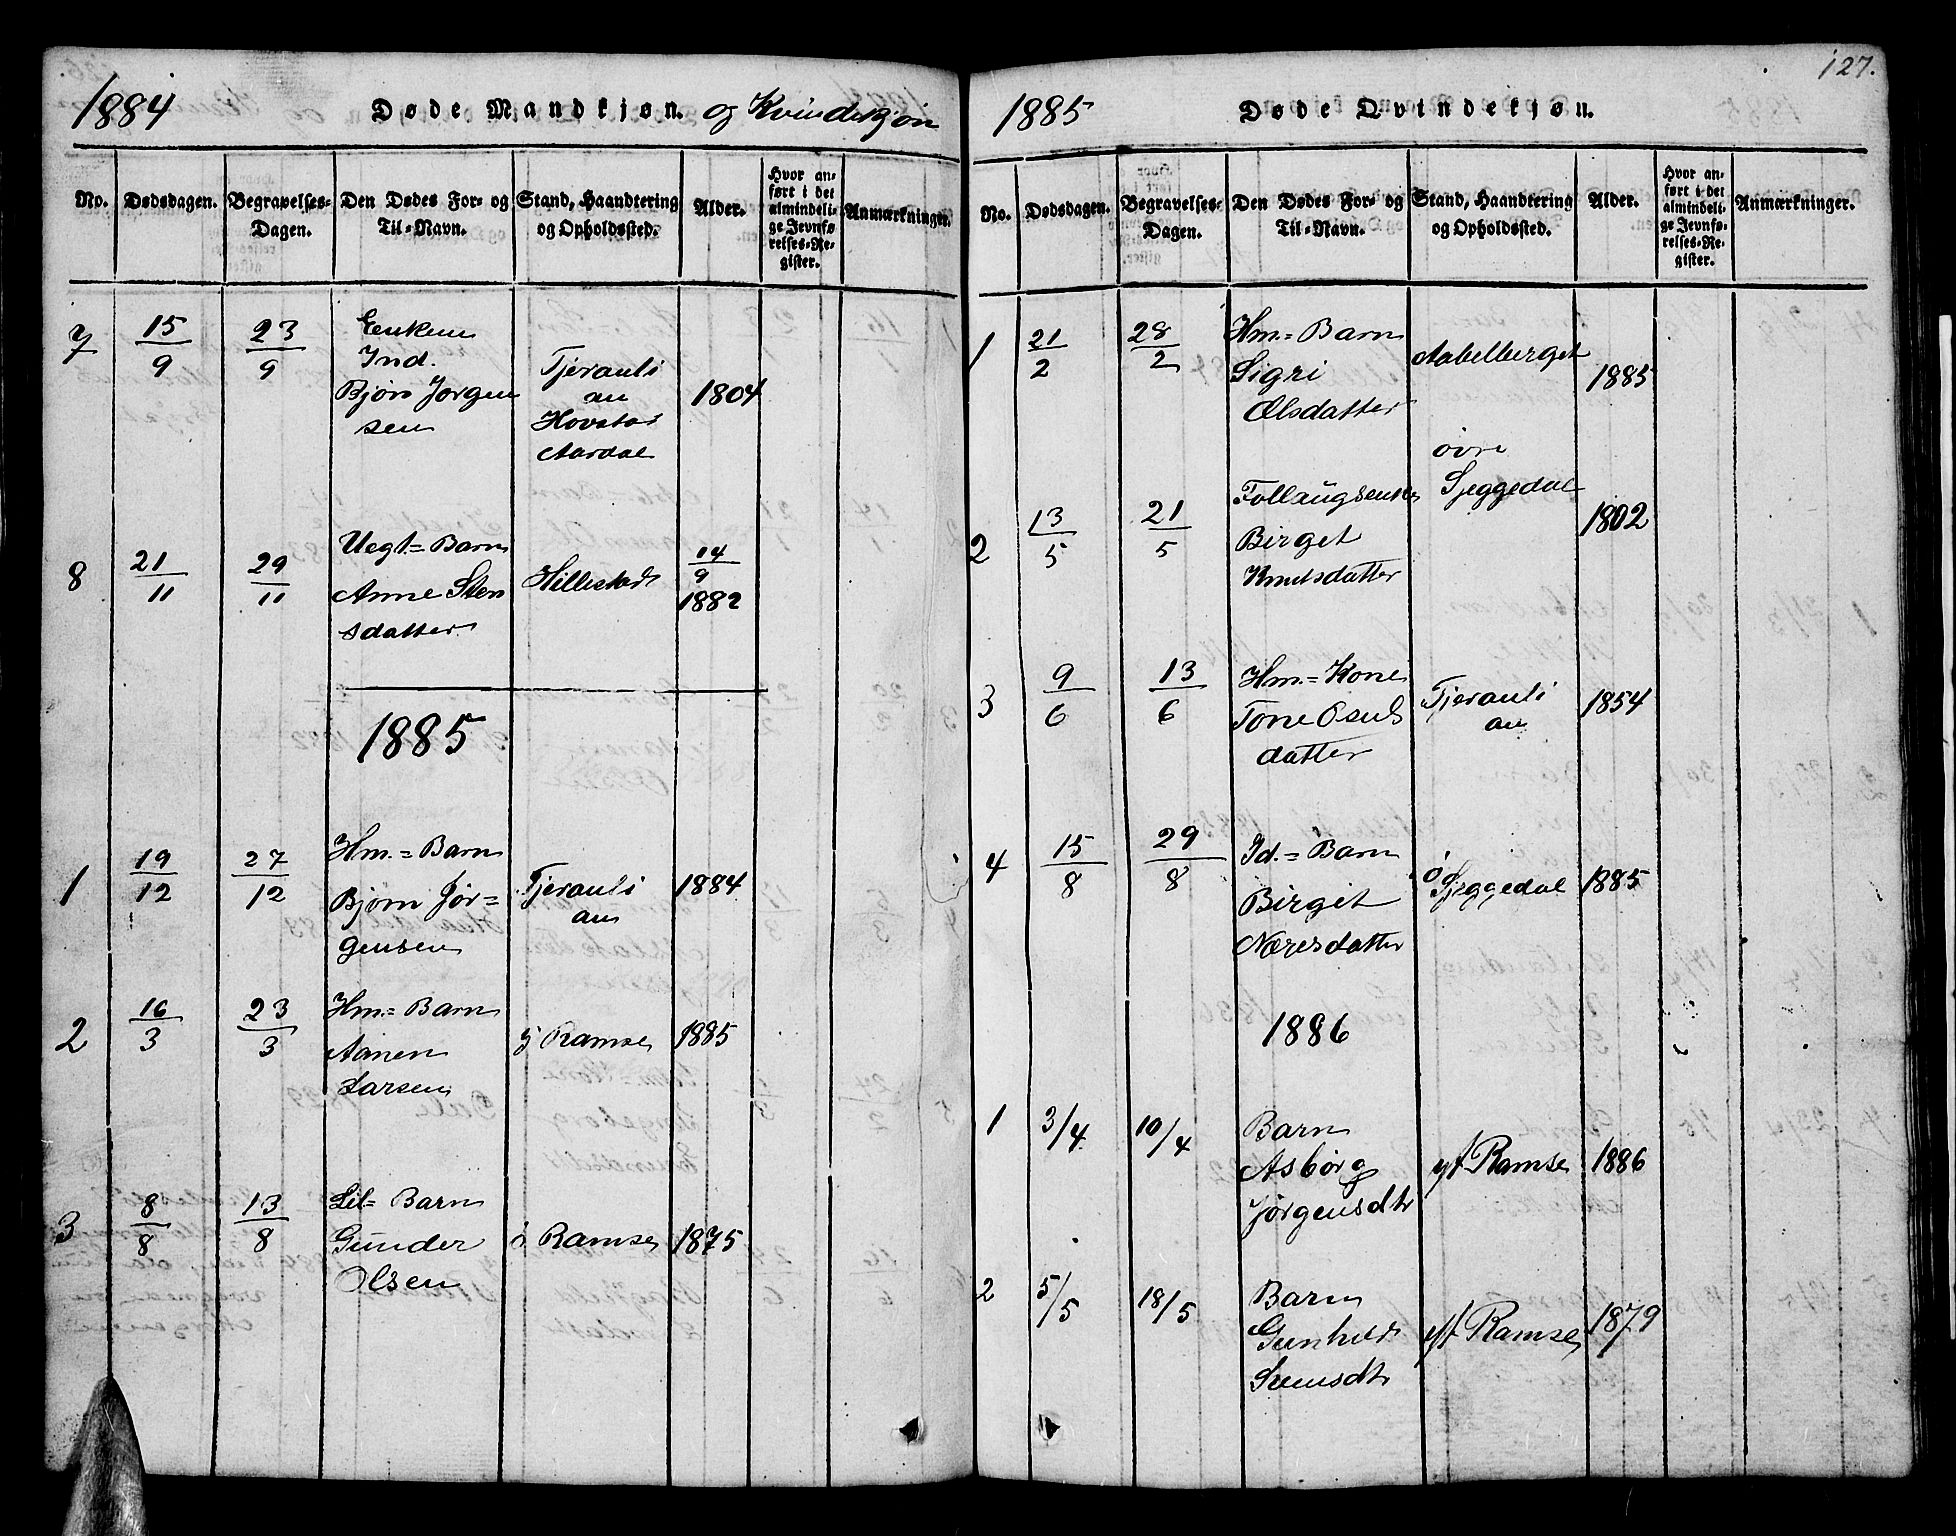 1884 Døde Mandkjøn. og Kvindekjøn
No. Dødsdagen. Begravelses-Dagen. Den Dødes For- og Til-Navn. Stand, Haandtering og Opholdssted. Alder. Hvor anført i det almindelige Jevnførelses-Register. Anmærkninger.
7 15/9 23/9 Enkem
Ind.
Bjørn Jørgen
sen
Tjerauli
an
Hovstad
Aardal
1804
8 21/11 29/11 Uegt= Barn
Anne Sten
sdatter
Hillestad
14/9
1882
1885
1 19/12 27/12 Hm.= Barn
Bjørn Jør=
gensen
Tjerauli
an
1884
2 16/3 23/3 Hm.= Barn
Aanen
Larsen
Ramse
1885
3 8/8 13/8 Barn
Gunder
Olsen
Ramse
1875
127.
1885 Døde Qvindekjøn.
No. Dødsdagen. Begravelses-Dagen. Den Dødes For- og Til-Navn. Stand, Haandtering og Opholdssted. Alder. Hvor anført i det almindelige Jevnførelses-Register. Anmærkninger.
1 21/2 28/2 Hm.= Barn
Sigri
Olsdatter
Aabelberget
1885
2 13/5 21/5
Birget
Knutsdatter
øvre
Sjeggedal
1802
3 9/6 13/6 Hm.= Kone
Tone Osuls
datter
Tjerauli
an
1854
4 15/8 29/8 Id.= Barn
Birget
Næresdatter
ø
Sjeggedal
1885
1886
1 3/4 10/4 Barn
Asbørg
Jørgensdtr
Ramse
1886
2 5/5 18/5 Barn
Gunhild
Svensdtr
Ramse
1879